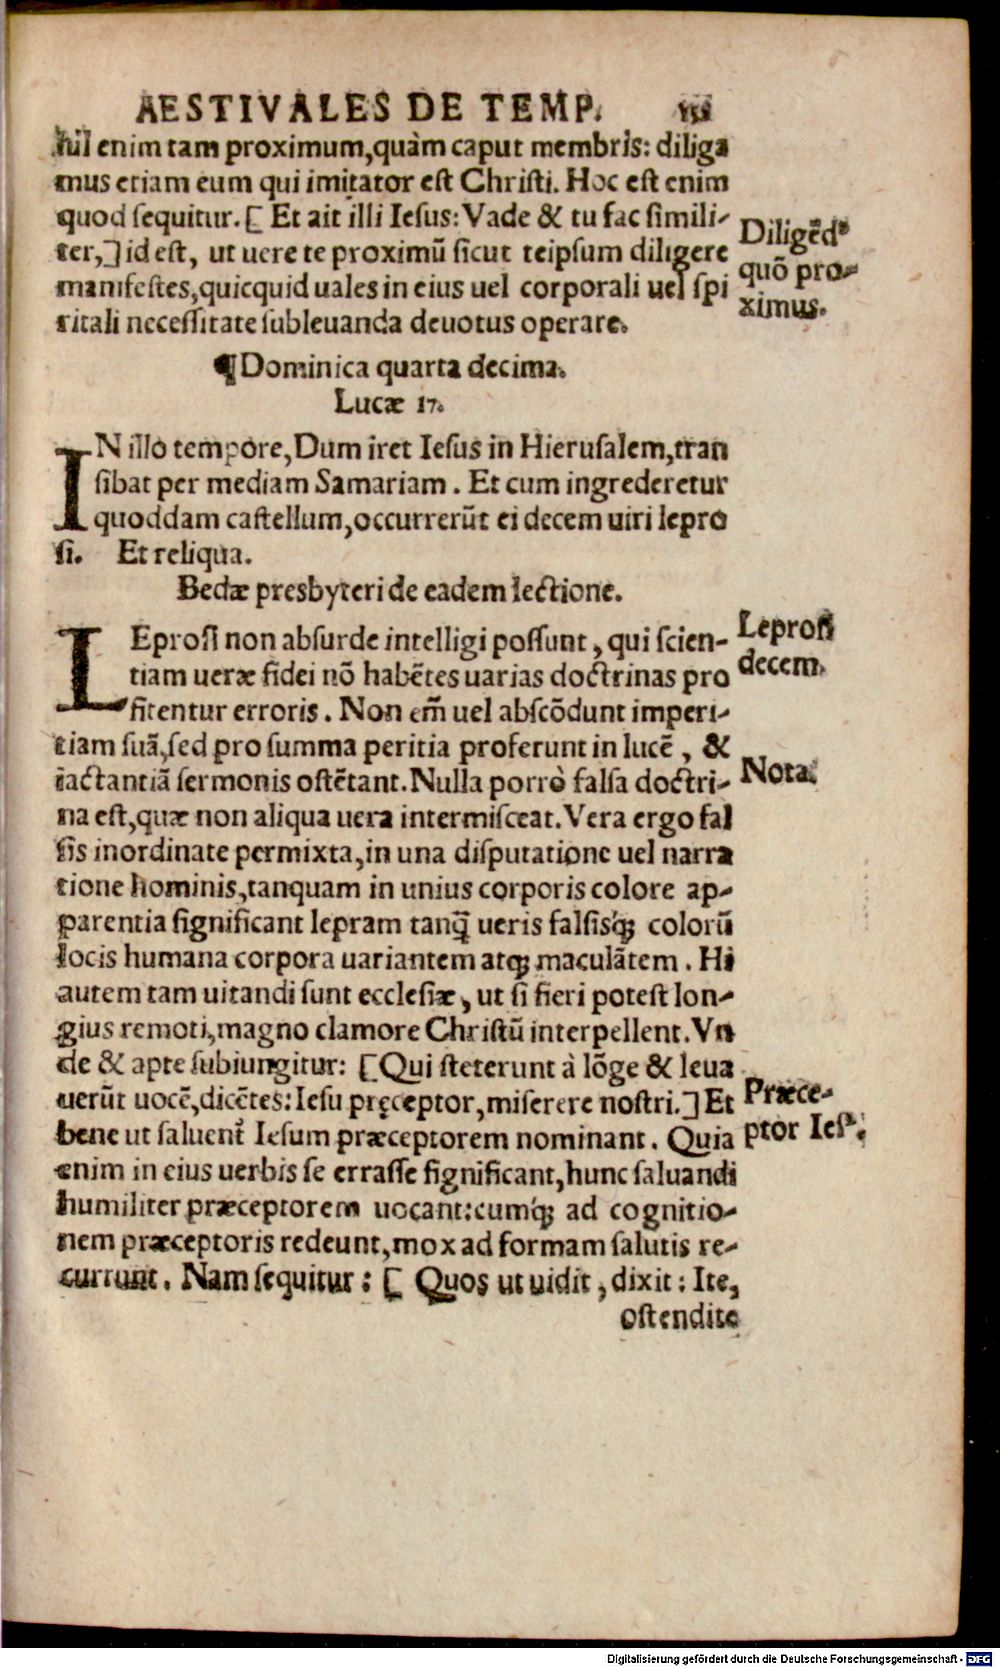 AESTIVALES DE TEMP.
hil enim tam proximum,quàm caput membris: diliga
mus etiam eum qui imitator est Christi. Hoc est enim
quod sequitur. [ Et ait illi Iesus: Vade & tu fac simili-
ter,] id est, ut uere te proximū sicut teipsum diligere
manifestes,quicquid uales in eius uel corporali uel spi
ritali necessitate subleuanda deuotus operare.
Diligēdꝰ
quō pro-
ximus.
¶Dominica quarta decima.
Lucæ 17.
IN illo tempore,Dum iret Iesus in Hierusalem,tran
sibat per mediam Samariam. Et cum ingrederetur
quoddam castellum,occurrerūt ei decem uiri lepro
si. Et reliqua.
Bedæ presbyteri de eadem lectione.
LEprosi non absurde intelligi possunt, qui scien-
tiam ueræ fidei nō habētes uarias doctrinas pro
fitentur erroris. Non em̄ uel abscōdunt imperi-
tiam suā,sed pro summa peritia proferunt in lucē, &
iactantiā sermonis ostētant. Nulla porrò falsa doctri-
na est,quæ non aliqua uera intermisceat. Vera ergo fal
sis inordinate permixta,in una disputatione uel narra
tione hominis,tanquam in unius corporis colore ap-
parentia significant lepram tanq̄ ueris falsisq́; colorū
locis humana corpora uariantem atq; maculātem. Hi
autem tam uitandi sunt ecclesiæ, ut si fieri potest lon-
gius remoti,magno clamore Christū interpellent. Vn
de & apte subiungitur: [Qui steterunt à lōge & leua
uerūt uocē,dicētes: Iesu pręceptor,miserere nostri.] Et
bene ut saluent᷑ Iesum præceptorem nominant. Quia
enim in eius uerbis se errasse significant,hunc saluandi
humiliter præceptorem uocant:cumq́; ad cognitio-
nem præceptoris redeunt,mox ad formam salutis re-
currunt. Nam sequitur: [ Quos ut uidit, dixit: Ite,
ostendite
Leprosi
decem.
Nota.
Præce-
ptor Iesꝰ.
Digitalisierung gefördert durch die Deutsche Forschungsgemeinschaft - DFG